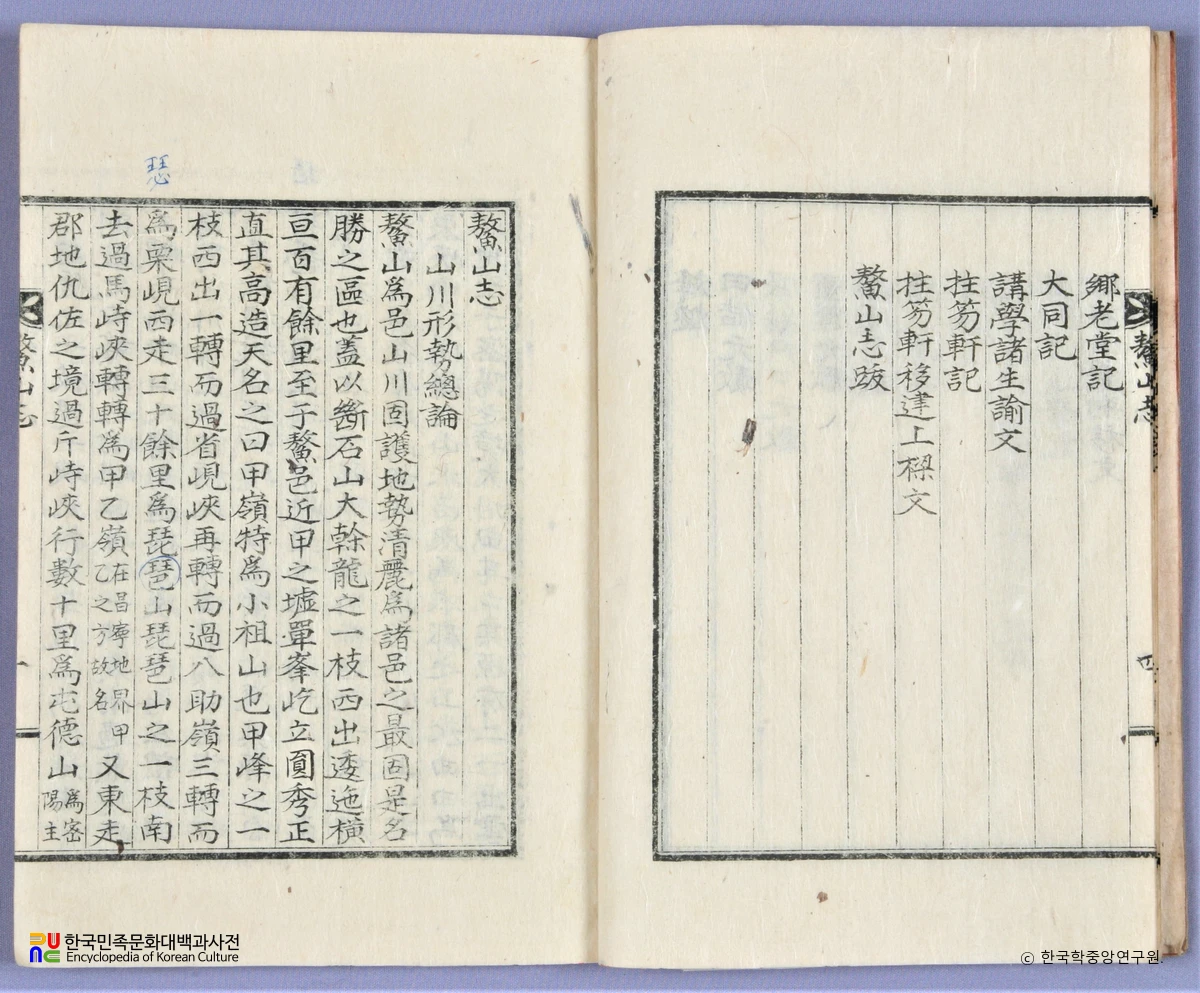 鄉老堂記
大同記
講學諸生諭文
拄笏軒記
拄笏軒移建上樑文
鰲山志跋
鰲山志
四
鰲山志
山川形勢總論
鰲山爲邑山川固護地勢清麗爲諸邑之最固是名
勝之區也蓋以斷石山大幹龍之一枝西出逶迤橫
亘百有餘里至于鰲邑近甲之墟單峯屹立圓秀正
直其高造天名之曰甲嶺特爲小祖山也甲峰之一
枝西出一轉而過省峴峽再轉而過八助嶺三轉而
爲栗峴西走三十餘里爲琵琶山琵琶山之一枝南
去過馬峙峽轉轉爲甲乙嶺在昌寧地界甲乙之方故名又東走
郡地仇佐之境過斤峙峽行數十里爲屯德山爲密陽主
鰲山志
一
瑟
한국민족문화대백과사전
Encyclopedia of Korean Culture
© 한국학중앙연구원.